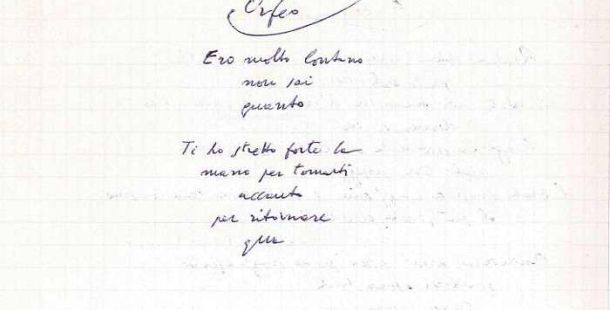 Orfeo
Ero molto lontano
non sai
quanto
Ti ho stretto forte la
mano per tornarti
accanto
per ritornare
qua